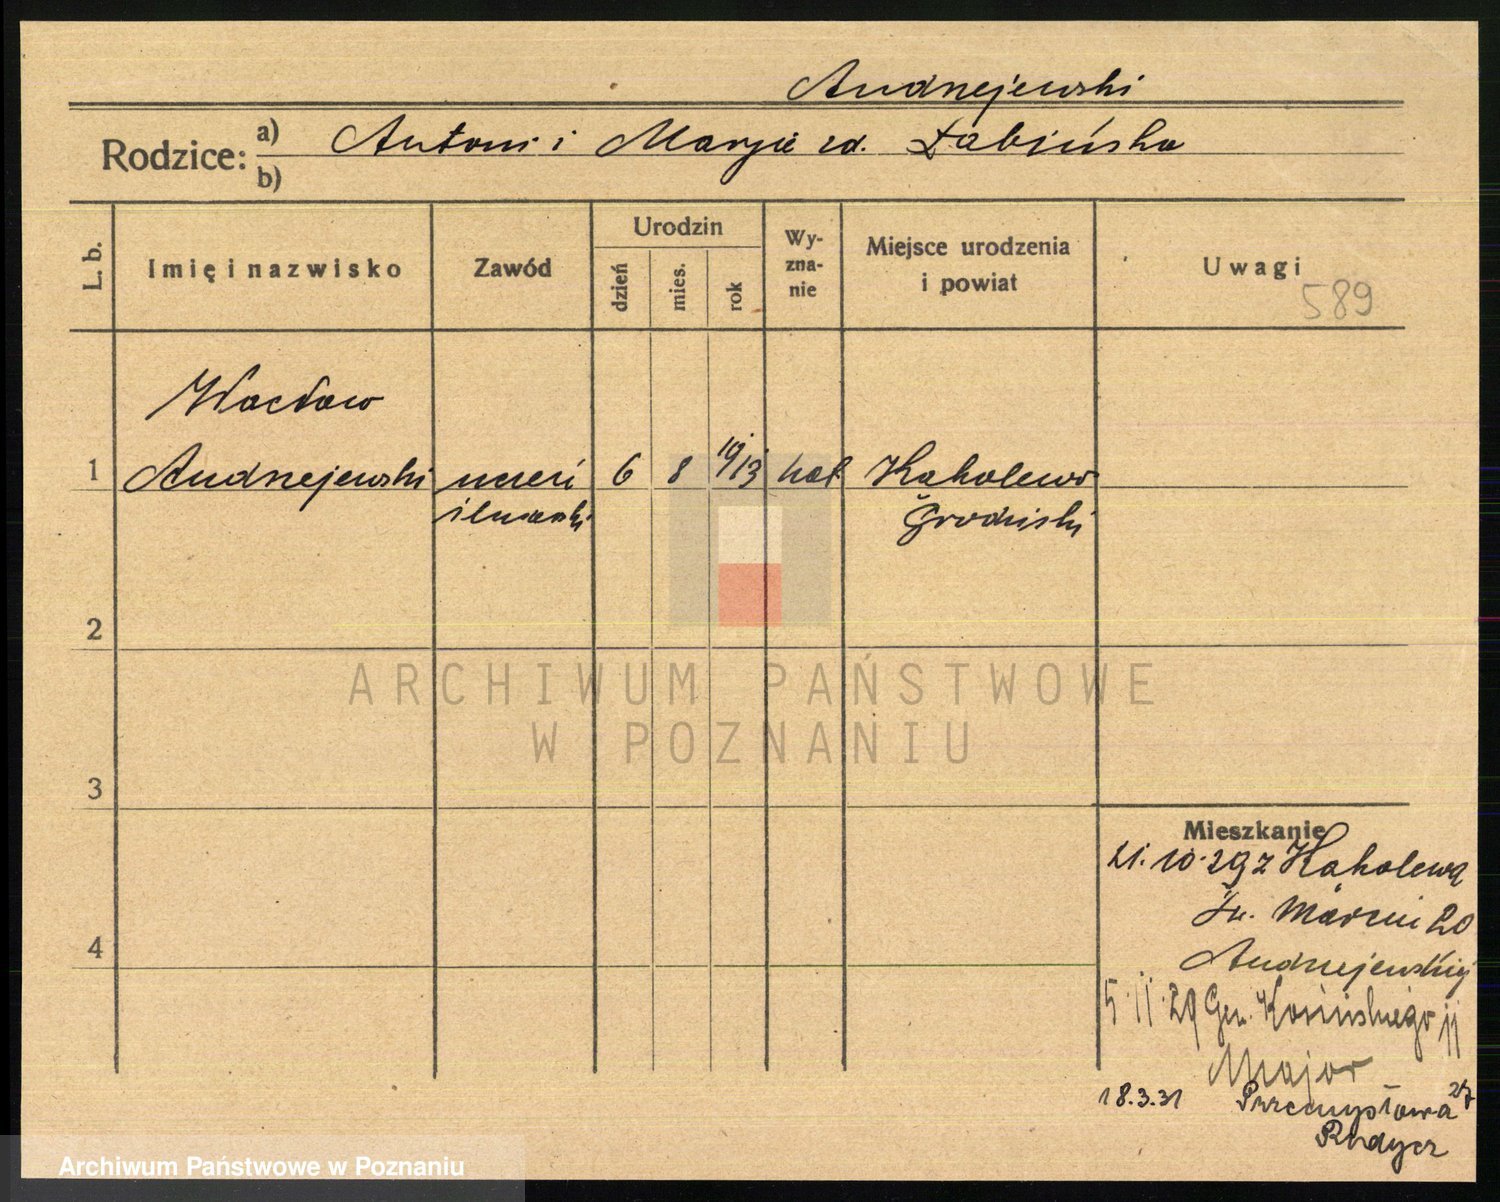 Andrzejewski
Rodzice: a) Antoni i Maryja zd. Łabińska
b)
L. b. Imię i nazwisko Zawód Urodzin dzień mies. rok Wyznanie Miejsce urodzenia i powiat Uwagi
589
Wacław
1 Andrzejewski uczeń 6 8 1913 kat. Kąkolewo
ślusarski Grodziski
2
3
4
ARCHIWUM PAŃSTWOWE
W POZNANIU
Mieszkanie
21.10.29 z Kąkolewa
Św. Marcin 20
Andrzejewskiej
5.11.29 Gen. Kosińskiego 11
Major
18.3.31 Przemysłowa 27
Archiwum Państwowe w Poznaniu